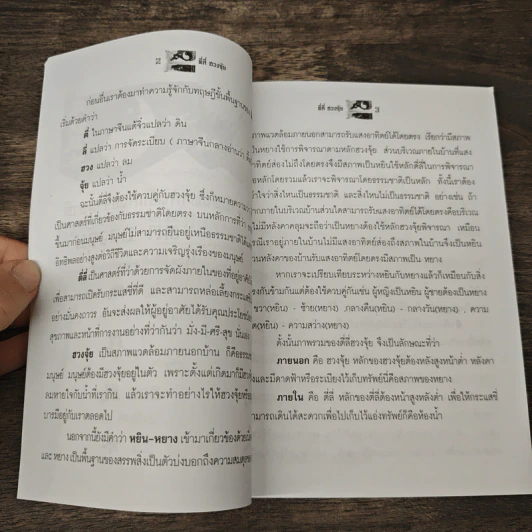 2
ตี่ลี่ ฮวงจุ้ย
ก่อนอื่นเราต้องมาทำความรู้จักกับทฤษฎีขั้นพื้นฐานของ
เริ่มด้วยคำว่า
ตี่ ในภาษาจีนแต้จิ๋วแปลว่า ดิน
ลี่ แปลว่า การจัดระเบียบ ( ภาษาจีนกลางอ่านว่า
ฮวง แปลว่า ลม
จุ้ย แปลว่า น้ำ
ฉะนั้นตี่ลี่จึงต้องใช้ควบคู่กับฮวงจุ้ย ซึ่งก็หมายความ
เป็นศาสตร์ที่เกี่ยวข้องกับธรรมชาติโดยตรง บนหลักการที่ว่า
ขึ้นมาก่อนมนุษย์ มนุษย์ไม่สามารถยืนอยู่เหนือธรรมชาติได้
อิทธิพลอย่างสูงต่อวิถีชีวิตและความเจริญรุ่งเรืองของมนุษย์
ตี่ลี่ เป็นศาสตร์ที่ว่าด้วยการจัดผังภายในของที่อยู่อาศัย
เพื่อสามารถเปิดรับกระแสชี่ที่ดี และสามารถหล่อเลี้ยงกระแส
อย่างมั่นคงถาวร อันจะส่งผลให้ผู้อยู่อาศัยได้รับคุณประโยชน์
สุขภาพและหน้าที่การงานอย่างที่ว่ากันว่า มั่ง-มี-ศรี-สุข นั่นเอง
ฮวงจุ้ย เป็นสภาพแวดล้อมภายนอกบ้าน ก็คือธรรม
มนุษย์ มนุษย์ต้องมีฮวงจุ้ยอยู่ในตัว เพราะตั้งแต่เกิดมาก็มี
ลมหายใจกับน้ำที่เรากิน แล้วเราจะทำอย่างไรให้ฮวงจุ้ย
บารมีอยู่กับเราตลอดไป
นอกจากนี้ยังมีคำว่า หยิน-หยาง เข้ามาเกี่ยวข้องด้วย
และ หยาง เป็นพื้นฐานของสรรพสิ่งเป็นตัวบ่งบอกถึงความสมดุล
ตี่ลี่ ฮวงจุ้ย
3
ภาพแวดล้อมภายนอกสามารถรับแสงอาทิตย์ได้โดยตรง เรียกว่ามีสภาพ
หยางใช้การพิจารณาตามหลักฮวงจุ้ย ส่วนบริเวณภายในบ้านที่แสง
อาทิตย์ส่องไม่ถึงโดยตรงจึงมีสภาพเป็นหยินใช้หลักตี่ลี่ในการพิจารณา
หลักโดยรวมแล้วเราจะพิจารณาโดยธรรมชาติเป็นหลัก ทั้งนี้เราต้อง
ใจว่าสิ่งไหนเป็นธรรมชาติ และสิ่งไหนไม่เป็นธรรมชาติ อย่างเช่น ถ้า
ภายในบริเวณบ้านส่วนใดสามารถรับแสงอาทิตย์ได้โดยตรงคือบริเวณ
ไม่มีหลังคาคลุมจะถือว่าเป็นหยางต้องใช้หลักฮวงจุ้ยพิจารณา เหมือน
เราอยู่ภายในบ้านไม่มีแสงอาทิตย์ส่องถึงสภาพในบ้านจึงเป็นหยิน
หลังคาของบ้านรับแสงอาทิตย์โดยตรงมีสภาพเป็น หยาง
หากเราจะเปรียบเทียบระหว่างหยินกับหยางแล้วก็เหมือนกับสิ่ง
ตรงกันข้ามกันแต่ต้องใช้ควบคู่กันเช่น ผู้หญิงเป็นหยิน ผู้ชายต้องเป็นหยาง
ขวา(หยิน) - ซ้าย(หยาง) ,กลางคืน(หยิน) - กลางวัน(หยาง) , ความ
มืด(หยิน) - ความสว่าง(หยาง)
ดั้งนั้นภาพรวมของตี่ลี่ฮวงจุ้ย จึงเป็นลักษณะที่ว่า
ภายนอก คือ ฮวงจุ้ย หลักของฮวงจุ้ยต้องหลังสูงหน้าต่ำ หลังคา
และมีดาดฟ้าหรือระเบียงไว้เก็บทรัพย์นี่คือสภาพของหยาง
ภายใน คือ ตี่ลี่ หลักของตี่ลี่ต้องหน้าสูงหลังต่ำ เพื่อให้กระแสชี่
สามารถเดินได้สะดวกเพื่อไปเก็บไว้แอ่งทรัพย์ก็คือห้องน้ำ